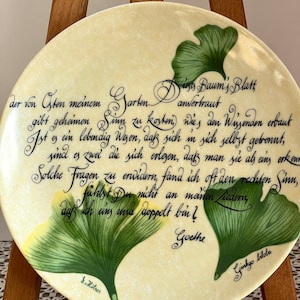 Dieses Baum's Blatt
der von Osten meinem Garten anvertraut
gibt geheimen Sinn zu kosten, wie's den Wissenden erbaut
Ist es ein lebendig Wesen, daß sich in sich selbst getrennt,
sind es zwei die sich erlesen, daß man sie als eins erkennt
Solche Fragen zu erwidern fand ich oft den rechten Sinn,
fühlst Du nicht an meinen Liedern,
daß ich eins und doppelt bin?
Goethe
Ginkgo biloba